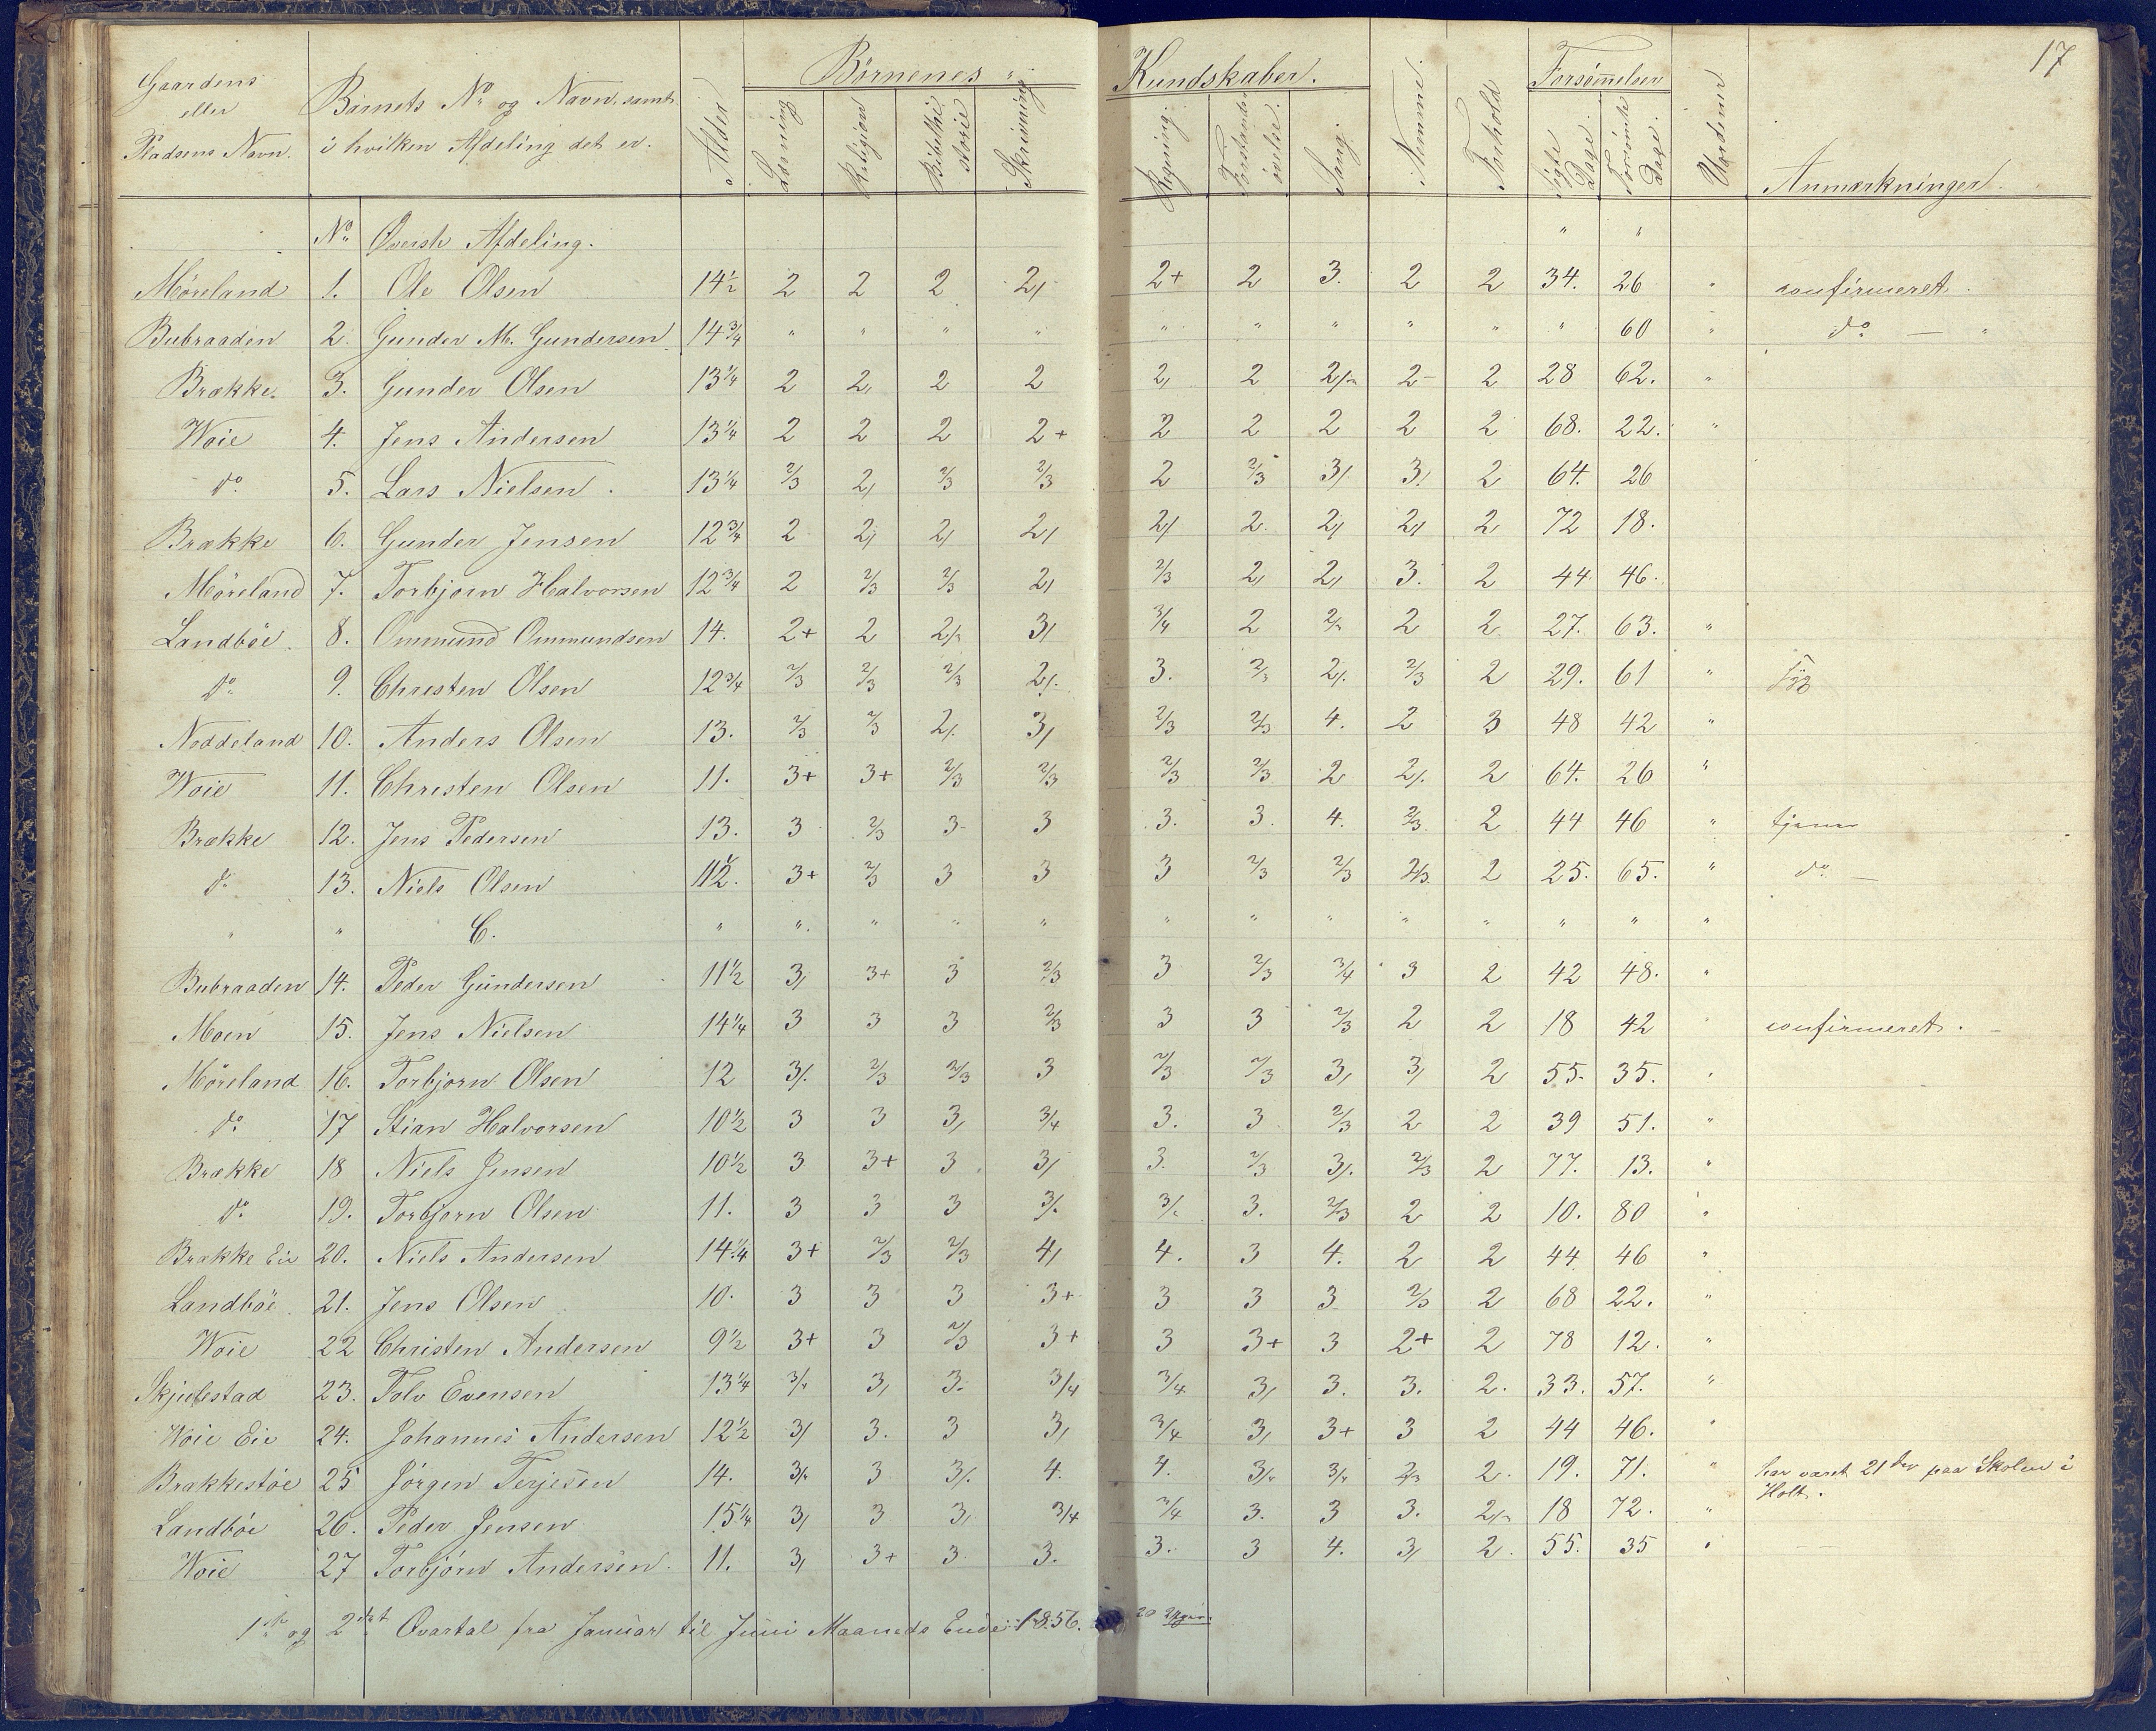 17
Gaardens eller Pladsens Navn. | Barnets No og Navn, samt i hvilken Afdeling det er. | Alder | Börnenes " Kundskaber. | Nemme. | Forhold | Forsømmelser | Anmærkninger.
Læsning | Religion | Bibelhi storie | Skrivning | Regning. | Forstands övelse. | Sang. | Sögte Dage. | Forsömte Dage.
No | Överste Afdeling. | " | "
Möreland | 1. | Ole Olsen | 14 1/2 | 2 | 2 | 2 | 2/ | 2+ | 2 | 3. | 2 | 2 | 34. | 26 | " | confirmeret.
Bubraaden | 2. | Gunder M. Gundersen | 14 3/4 | " | " | " | " | " | " | " | " | " | " | 60 | " | do — "
Brække. | 3. | Gunder Olsen | 13 1/4 | 2 | 2/ | 2 | 2 | 2/ | 2 | 2/- | 2- | 2 | 28 | 62. | "
Woie | 4. | Jens Andersen | 13 1/4 | 2 | 2 | 2 | 2+ | 2 | 2 | 2 | 2 | 2 | 68. | 22. | "
do | 5. | Lars Nielsen. | 13 1/4 | 2/3 | 2/ | 2/3 | 2/3 | 2 | 2/3 | 3/ | 3/ | 2 | 64. | 26
Brække | 6. | Gunder Jensen | 12 3/4 | 2 | 2/ | 2/ | 2/ | 2/ | 2. | 2/ | 2/ | 2 | 72 | 18.
Möreland | 7. | Torbjorn Halvorsen | 12 3/4 | 2 | 2/3 | 2/3 | 2/ | 2/3 | 2/ | 2/ | 3. | 2 | 44 | 46.
Landböe. | 8. | Ommund Ommundsen | 14. | 2+ | 2 | 2/- | 3/ | 3/4 | 2 | 2/- | 2 | 2 | 27. | 63. | "
do | 9. | Christen Olsen | 12 3/4 | 2/3 | 2/3 | 2/3 | 2/. | 3. | 2/3 | 2/. | 2/3 | 2 | 29. | 61 | "
Noddeland | 10. | Anders Olsen | 13. | 2/3 | 2/3 | 2/. | 3/ | 2/3 | 2/3 | 4. | 2 | 3 | 48 | 42 | "
Woie | 11. | Christen Olsen | 11. | 3+ | 3+ | 2/3 | 2/3 | 2/3 | 2/3 | 2 | 2/. | 2 | 64. | 26 | "
Brække | 12. | Jens Pedersen | 13. | 3 | 2/3 | 3 | 3 | 3. | 3. | 4. | 2/3 | 2 | 44 | 46 | " | tjener
do | 13. | Niels Olsen | 11 1/2. | 3+ | 2/3 | 3 | 3 | 3 | 2/3 | 2/3 | 2/3 | 2 | 25. | 65. | " | do —
" | " | C. | " | " | " | " | " | " | " | " | " | " | " | " | "
Bubraaden | 14. | Peder Gundersen | 11 1/2 | 3/ | 3+ | 3 | 2/3 | 3 | 2/3 | 3/4 | 3 | 2 | 42 | 48. | "
Moen | 15. | Jens Nielsen | 14 1/4 | 3 | 3 | 3 | 2/3 | 3 | 3 | 2/3 | 2 | 2 | 18 | 42 | " | confirmeret.
Möreland | 16. | Torbjorn Olsen | 12 | 3/. | 2/3 | 2/3 | 3 | 2/3 | 2/3 | 3/ | 3/ | 2 | 55. | 35. | "
do | 17 | Stian Halvorsen | 10 1/2 | 3 | 3 | 3/ | 3/4 | 3. | 3 | 2/3 | 2 | 2 | 39 | 51. | "
Brække | 18 | Niels Jensen | 10 1/2 | 3 | 3+ | 3 | 3/ | 3. | 2/3 | 3/. | 2/3 | 2 | 77. | 13. | "
do | 19. | Torbjorn Olsen | 11. | 3 | 3 | 3 | 3/. | 3/. | 3. | 2/3 | 2 | 2 | 10. | 80 | "
Brække Eie | 20. | Niels Andersen | 14 1/4 | 3+ | 2/3 | 2/3 | 4/ | 4. | 3 | 4. | 2 | 2 | 44 | 46 | "
Landböe. | 21. | Jens Olsen | 10. | 3 | 3 | 3 | 3+ | 3 | 3 | 3 | 2/3 | 2 | 68 | 22. | "
Woie | 22 | Christen Andersen | 9 1/2 | 3+ | 3 | 2/3 | 3+ | 3 | 3+ | 3 | 2+ | 2 | 78 | 12. | "
Skjulestad | 23. | Tolv Evensen | 13 1/4 | 3/- | 3/ | 3. | 3/4 | 3/4 | 3/ | 3. | 3. | 2. | 33. | 57. | "
Woie Eie | 24. | Johannes Andersen | 12 1/2 | 3/ | 3. | 3 | 3/ | 3/4 | 3/ | 3+ | 3 | 2 | 44 | 46. | "
Brækkestöe | 25 | Jörgen Terjesen | 14. | 3/- | 3 | 3/. | 4. | 4. | 3/- | 3/- | 2/3 | 2. | 19. | 71. | " | har været 21 paa Skolen i
Holt.
Landböe | 26. | Peder Jensen | 15 1/4 | 3/ | 3 | 3/ | 3/4 | 3/4 | 3. | 3 | 3. | 2/- | 18 | 72. | "
Woie | 27 | Torbjörn Andersen. | 11. | 3/ | 3+ | 3 | 3. | 3. | 3 | 4. | 3/ | 2. | 55. | 35 | "
1ste og 2det Qvartal fra Januar til Juni Maaneds Ende 1856. 20 Uger.